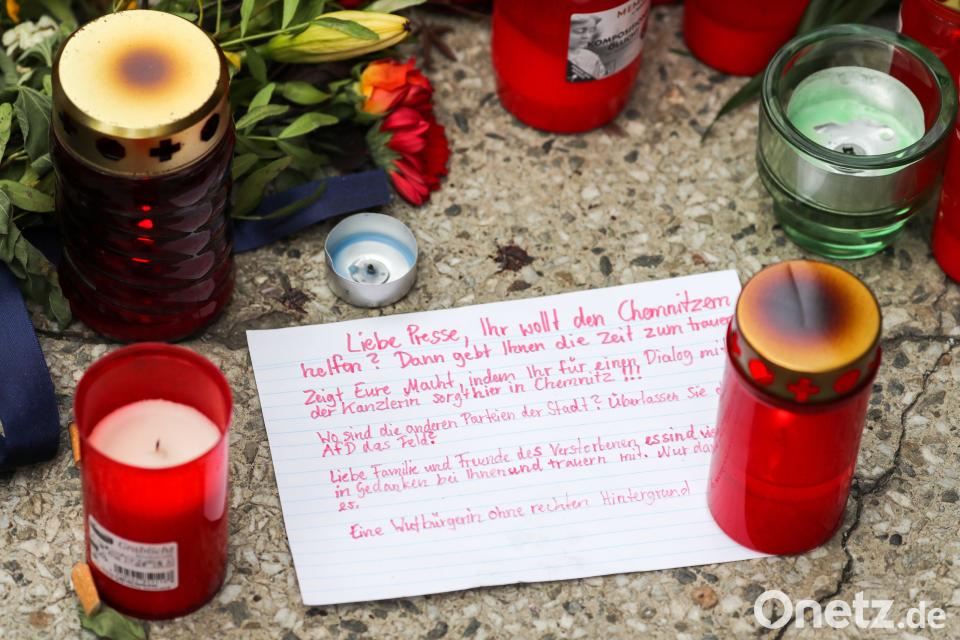 Liebe Presse, Ihr wollt den Chemnitzern
helfen? Dann gebt Ihnen die Zeit zum trauer
Zeigt Eure Macht indem Ihr für einen Dialog mit
der Kanzlerin sorgt hier in Chemnitz!!!
Wo sind die anderen Parteien der Stadt? Überlassen Sie d
AfD das Feld?
Liebe Familie und Freunde des Verstorbenen, es sind vie
in Gedanken bei Ihnen und trauern mit. Nur da
es.
Eine Wutbürgerin ohne rechten Hintergrund
Grablicht
KOMPOSITIONS
Onetz.de